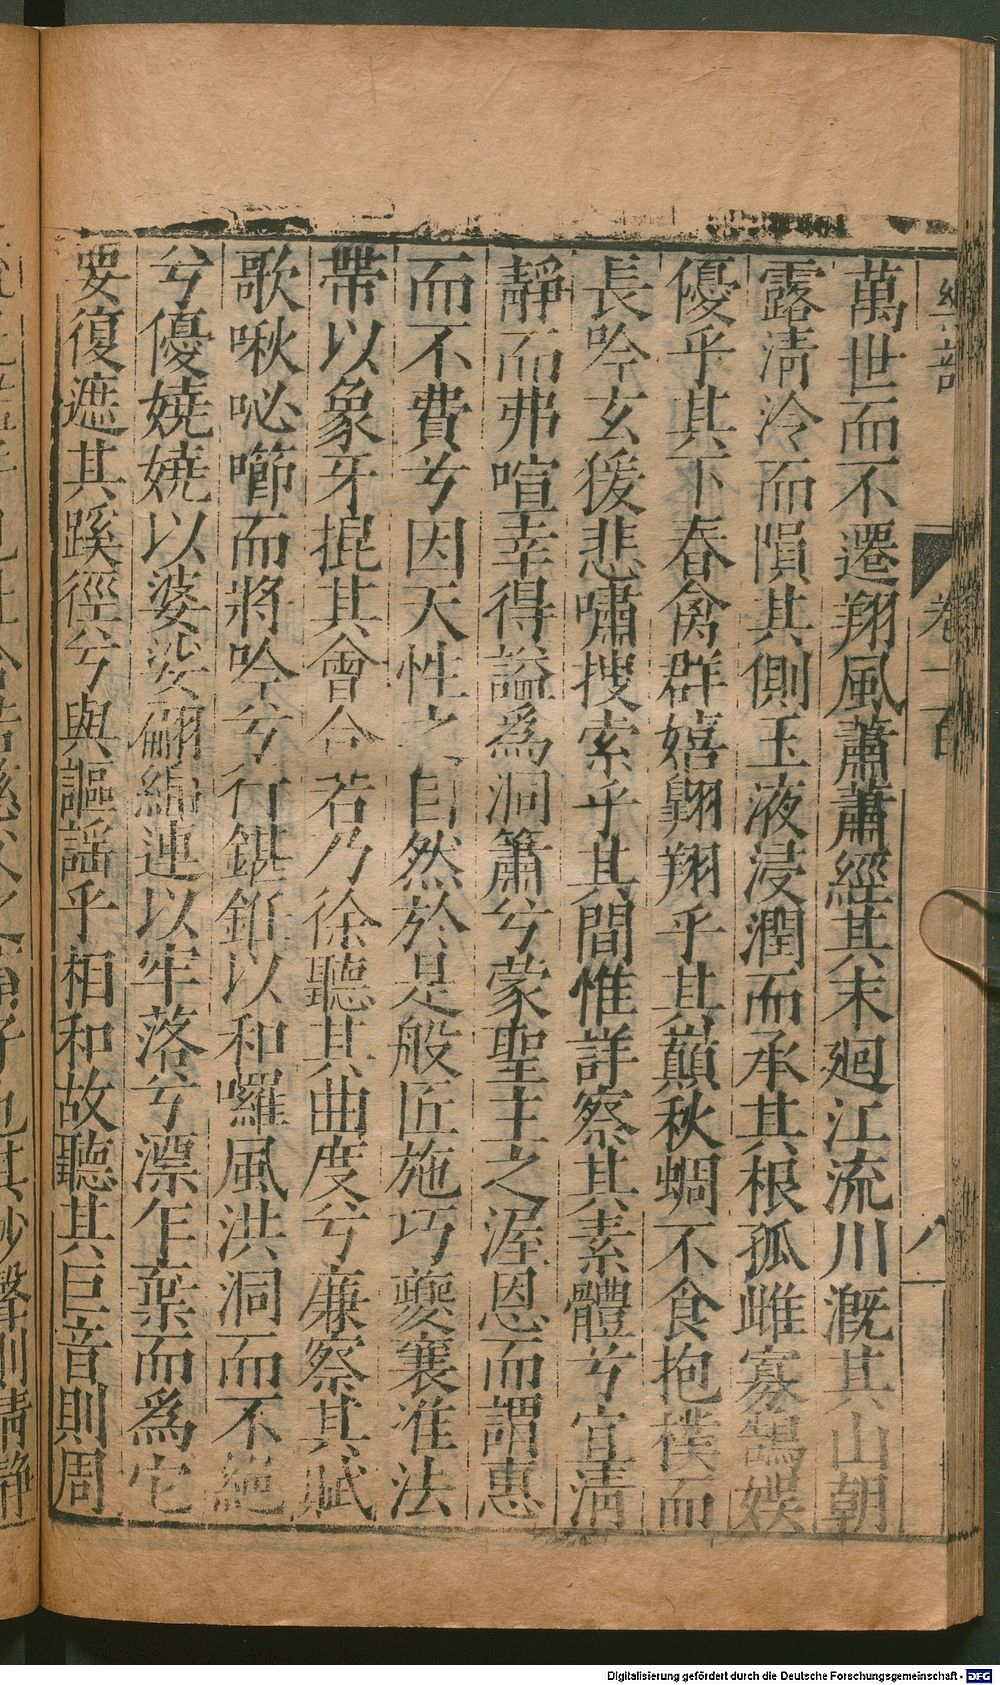 樂部　卷一百　八
萬世而不遷翔風蕭蕭經其末廻江流川溉其山朝
露清泠而隕其側玉液浸潤而承其根孤雌寡鵠娛
優乎其下春禽群嬉翺翔乎其巔秋蜩不食抱樸而
長吟玄猨悲嘯搜索乎其間惟詳察其素體兮宜清
靜而弗喧幸得謚爲洞簫兮蒙聖主之渥恩而謂惠
而不費兮因天性之自然於是般匠施巧夔襄准法
帶以象牙掍其會合若乃徐聽其曲度兮廉察其賦
歌啾咇㘉而將吟兮行鍖銋以和囉風洪洞而不絕
兮優嬈嬈以婆娑翩緜連以牢落兮漂乍棄而爲它
要復遮其蹊徑兮與謳謠乎相和故聽其巨音則周
Digitalisierung gefördert durch die Deutsche Forschungsgemeinschaft - DFG